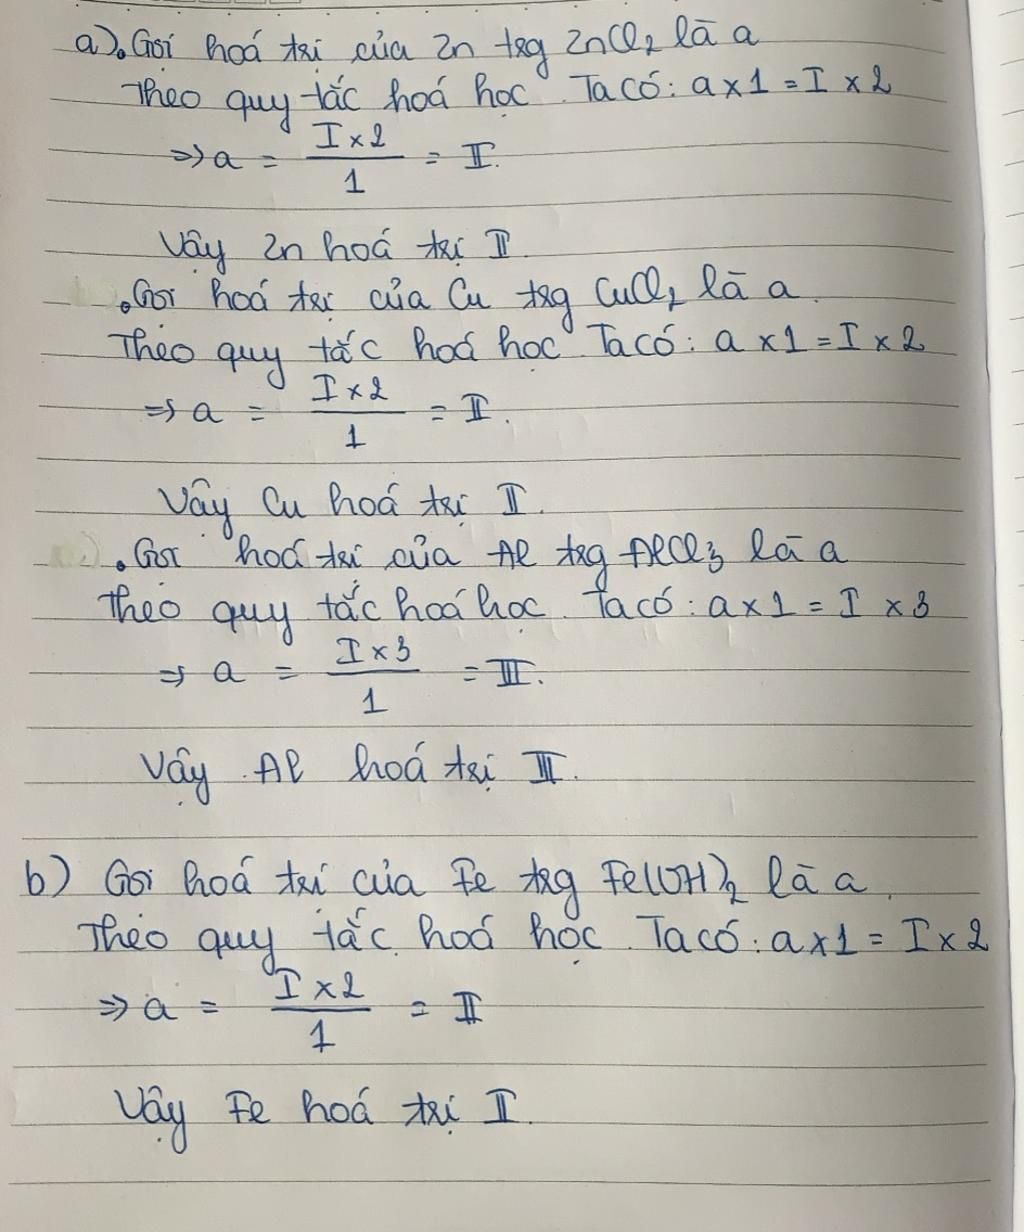 a). Gọi hoá trị của Zn trg ZnCl₂ là a
Theo quy tắc hoá học. Ta có: a x 1 = I x 2
=> a = I x 2 / 1 = II.
Vậy Zn hoá trị II.
. Gọi hoá trị của Cu trg CuCl₂ là a.
Theo quy tắc hoá học Ta có: a x 1 = I x 2
=> a = I x 2 / 1 = II.
Vậy Cu hoá trị II.
. Gọi hoá trị của Al trg AlCl₃ là a
Theo quy tắc hoá học. Ta có: a x 1 = I x 3
=> a = I x 3 / 1 = III.
Vậy Al hoá trị III.
b) Gọi hoá trị của Fe trg Fe(OH)₂ là a.
Theo quy tắc hoá học. Ta có: a x 1 = I x 2
=> a = I x 2 / 1 = II
Vậy Fe hoá trị II.